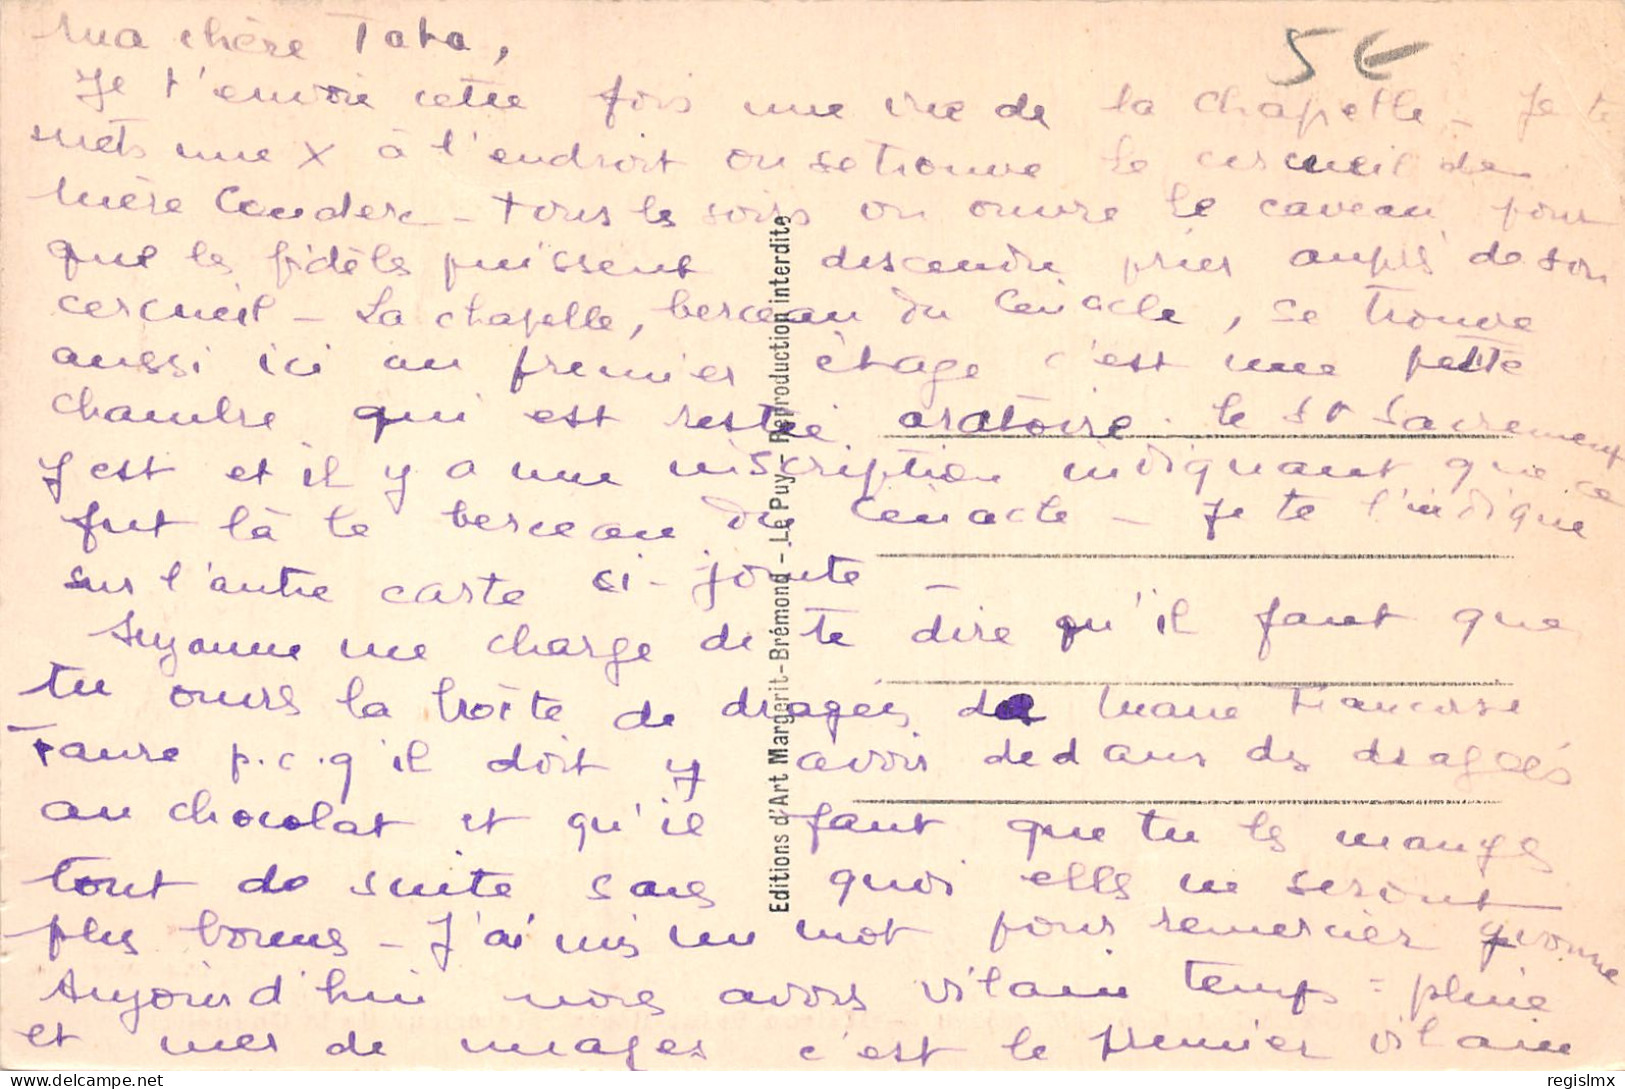 ma chère Tata,
5 €
Je t'envoie cette fois une vue de la chapelle - Je te
mets une X à l'endroit ou se trouve le cercueil de
Mère Couderc - tous les soirs on ouvre le caveau pour
que les fidèles puissent descendre prier auprès de son
cercueil - La chapelle, berceau du Cénacle, se trouve
aussi ici au premier étage c'est une petite
chambre qui est restée oratoire. le St Sacrement
y est et il y a une inscription indiquant que ce
fut là le berceau du Cénacle - Je te l'indique
sur l'autre carte ci-jointe -
Suzanne me charge de te dire qu'il faut que
tu ouvres la boîte de dragées de Marie Françoise
Faure p.c.q'il doit y avoir dedans des dragées
au chocolat et qu'il faut que tu les manges
tout de suite sans quoi elles ne seront
plus bonnes - J'ai mis un mot pour remercier Yvonne
Aujourd'hui nous avons vilain temps : pluie
et mer de nuages c'est le premier vilain
Editions d'Art Margerit-Brémond - Le Puy - Reproduction interdite
delcampe.net
regislmx